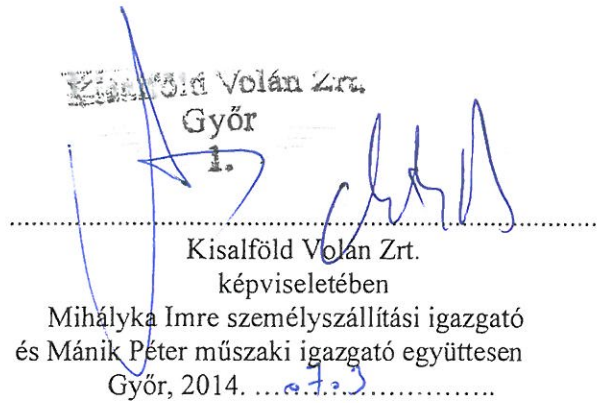 Kisalföld Volán Zrt.
Győr
1.
Kisalföld Volán Zrt.
képviseletében
Mihályka Imre személyszállítási igazgató
és Mánik Péter műszaki igazgató együttesen
Győr, 2014. ....07.3......................